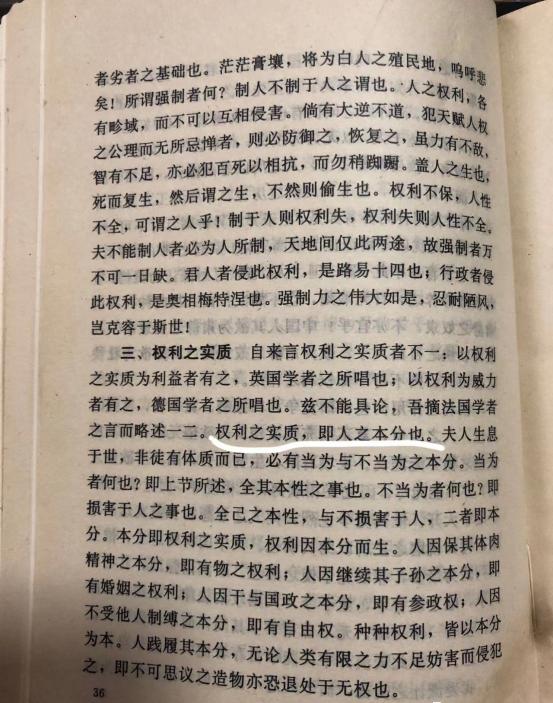 者劣者之基础也。茫茫膏壤，将为白人之殖民地，呜呼悲
矣！所谓强制者何？制人不制于人之谓也。人之权利，各
有畛域，而不可以互相侵害。倘有大逆不道，犯天赋人权
之公理而无所忌惮者，则必防御之，恢复之，虽力有不敌，
智有不足，亦必犯百死以相抗，而勿稍踟蹰。盖人之生也，
死而复生，然后谓之生，不然则偷生也。权利不保，人性
不全，可谓之人乎！制于人则权利失，权利失则人性不全。
夫不能制人者必为人所制，天地间仅此两途，故强制者万
不可一日缺。君人者侵此权利，是路易十四也；行政者侵
此权利，是奥相梅特涅也。强制力之伟大如是，忍耐陋风，
岂克容于斯世！
三、权利之实质　自来言权利之实质者不一：以权利
之实质为利益者有之，英国学者之所唱也；以权利为威力
者有之，德国学者之所唱也。兹不能具论，吾摘法国学者
之言而略述一二。权利之实质，即人之本分也。夫人生息
于世，非徒有体质而已，必有当为与不当为之本分。当为
者何也？即上节所述，全其本性之事也。不当为者何也？即
损害于人之事也。全己之本性，与不损害于人，二者即本
分。本分即权利之实质，权利因本分而生。人因保其体肉
精神之本分，即有物之权利；人因继续其子孙之本分，即
有婚姻之权利；人因干与国政之本分，即有参政权；人因
不受他人制缚之本分，即有自由权。种种权利，皆以本分
为本。人践履其本分，无论人类有限之力不足妨害而侵犯
之，即不可思议之造物亦恐退处于无权也。
36